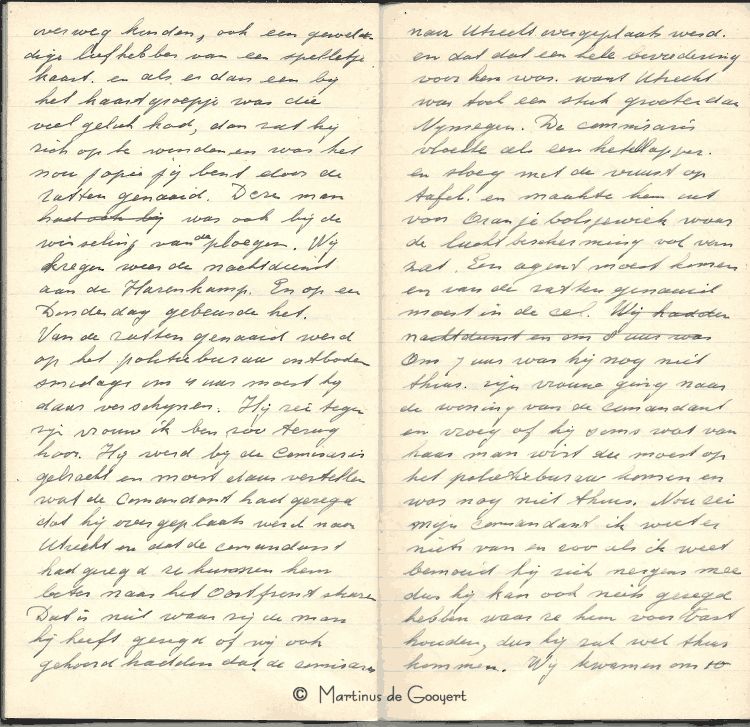 overweg konden, ook een geweldi
dige liefhebber van een spelletje
kaart. en als er dan een by
het kaartgroepje was die
veel geluk had, dan zat hy
zich op te winden en was het
nou papie jij bent door de
ratten genaaid. Deze man
had ook hy was ook by de
wisseling van de ploegen. Wy
kregen weer de nachtdienst
aan de Harenkamp. En op een
Donderdag gebeurde het.
Van de ratten genaaid werd
op het politiebureau ontboden
smidags om 4 uur moest hy
daar verschynen. Hy zei tegen
zijn vrouw ik ben zoo terug
hoor. Hy werd by de Commisaris
gebracht en moest daar vertellen
wat de Comandant had gezegd
dat hy overgeplaats werd naar
Utrecht en dat de comandant
had gezegd ze kunnen hem
beter naar het Oostfront sturen
Dat is niet waar zij de man
hy heeft gezegd of wij ook
gehoord hadden dat de comisaris
naar Utrecht overgeplaats werd.
en dat dat een hele bevordering
voor hem was. want Utrecht
was toch een stuk grooter dan
Nymegen. De commisaris
vloekte als een ketellapper.
en sloeg met de vuist op
tafel. en maakte hem uit
voor Oranje bolsjewiek waar
de luchtbescherming vol van
zat. Een agent moest komen
en van de ratten genaaid
moest in de cel. Wij hadden
nachtdienst en om 8 uur was
Om 7 uur was hij nog niet
thuis. zijn vrouw ging naar
de woning van de comandant
en vroeg of hij soms wat van
haar man wist die moest op
het politiebureau komen en
was nog niet thuis. Nou zei
mijn comandant ik weet er
niets van en zoo als ik weet
bemoeid hij zich nergens mee
dus hij kan ook niets gezegd
hebben waar ze hem voor vast
houden, dus hij zal wel thuis
kommen. Wij kwamen om 10
© Martinus de Gooyert